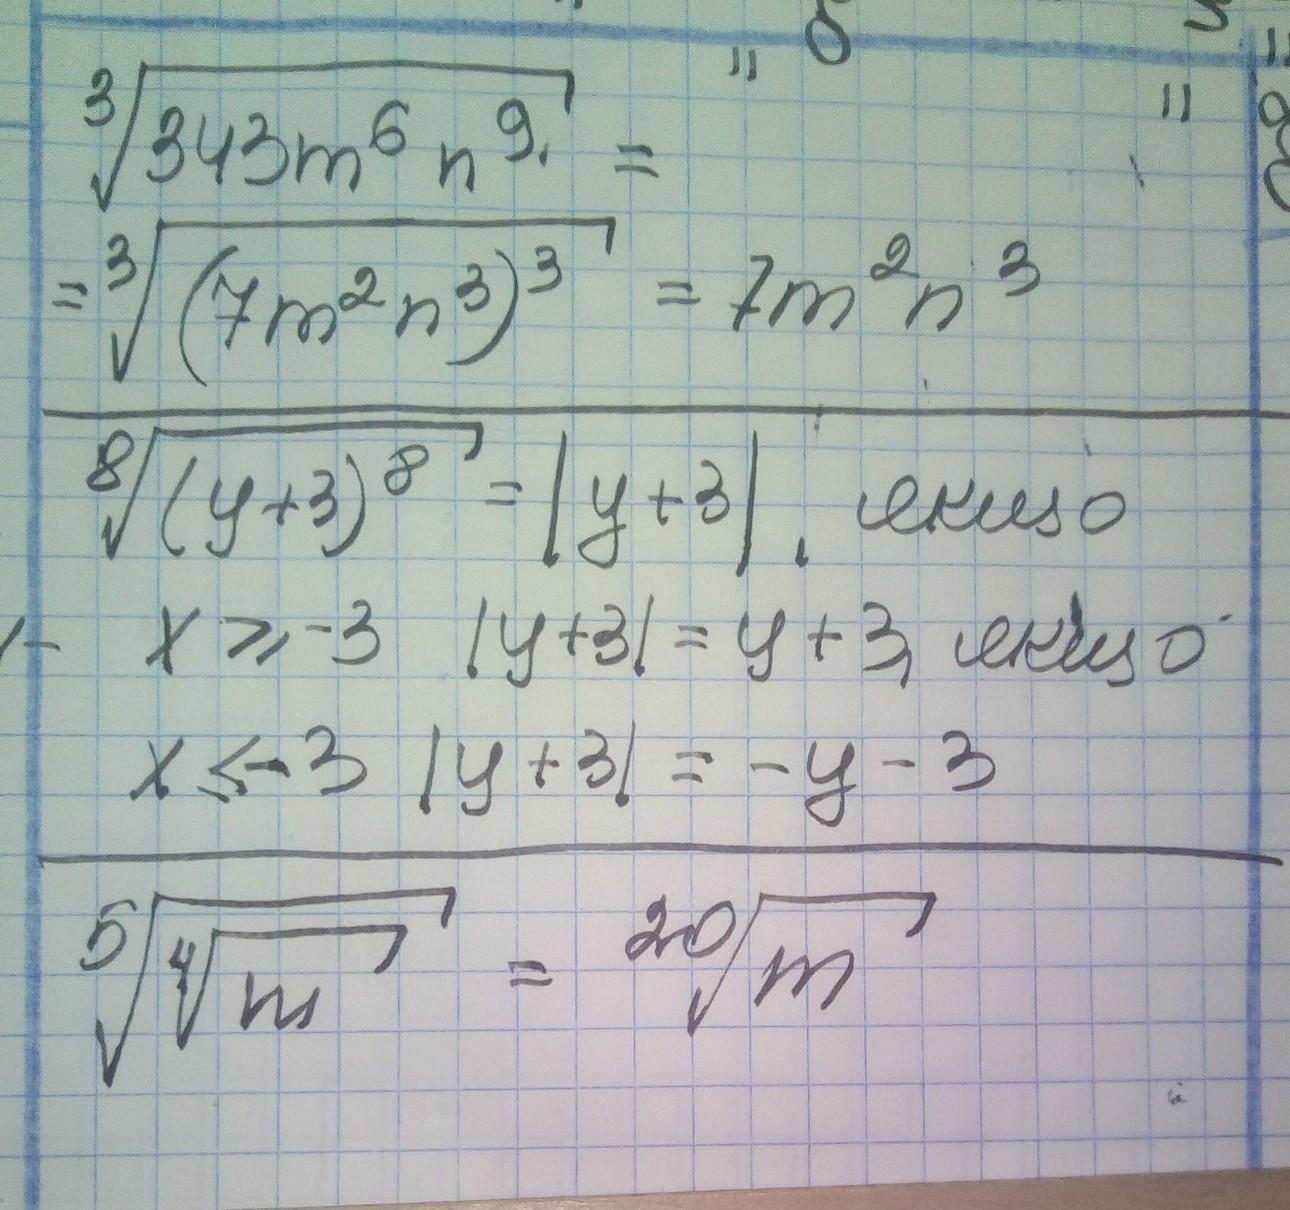 ∛(343m⁶n⁹) =
= ∛((7m²n³)³) = 7m²n³
⁸√((y+3)⁸) = |y+3|, якщо
x ⩾ -3 |y+3| = y+3, якщо
x ⩽ -3 |y+3| = -y-3
⁵√(⁴√m) = ²⁰√m